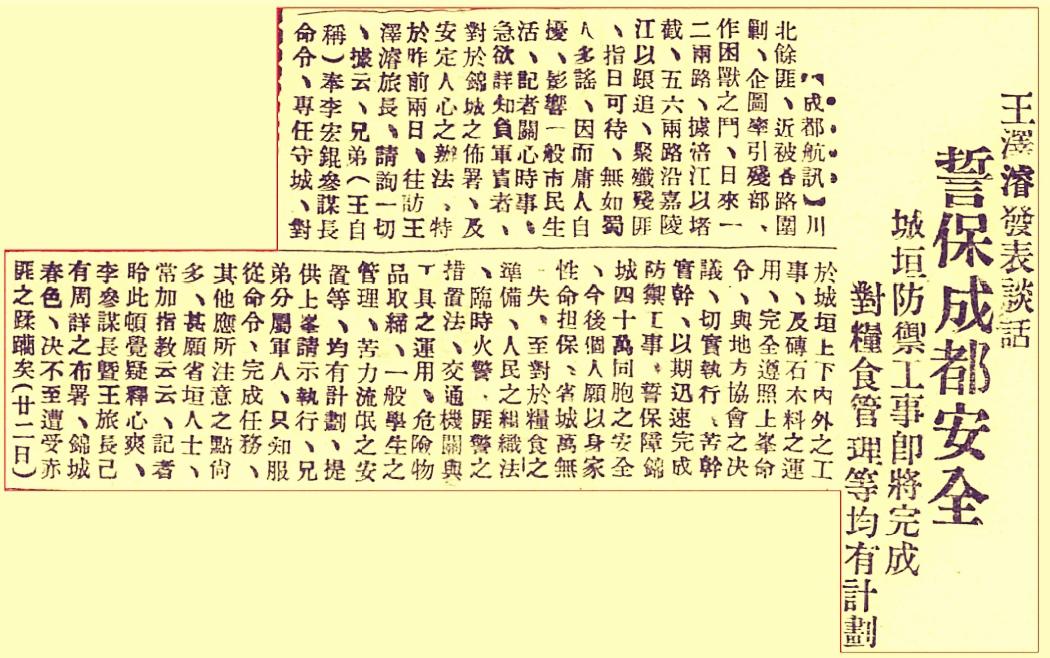 王澤濬發表談話
誓保成都安全
城垣防禦工事卽將完成
對糧食管理等均有計劃
【成都航訊】川
北餘匪、近被各路圍
剿、企圖率引殘部、
作困獸之鬥、日來一
二兩路、據涪江以堵
截、五六兩路沿嘉陵
江以跟追、聚殲殘匪
、指日可待、無如蜀
人多謠、因而庸人自
擾、影響一般市民生
活、記者關心時事、
急欲詳知負軍責者、
對於錦城之佈署、及
安定人心之辦法、特
於昨前兩日、往訪王
澤濬旅長、請詢一切
、據云、兄弟（王自
稱）奉李宏錕參謀長
命令、專任守城、對
於城垣上下內外之工
事、及磚石木料之運
用、完全遵照上峯命
令、與地方協會之決
議、切實執行、苦幹
實幹、以期迅速完成
防禦工事、誓保障錦
城四十萬同胞之安全
、今後個人願以身家
性命担保、省城萬無
一失、至對於糧食之
準備、人民之組織法
、臨時火警、匪警之
措置法、交通機關與
工具之運用、危險物
品取締、一般學生之
管理、苦力流氓之安
置等、均有計劃、提
供上峯請示執行、兄
弟分屬軍人、只知服
從命令、完成任務、
其他應所注意之點尙
多、甚願省垣人士、
常加指教云云、記者
聆此頓覺疑釋心爽、
李參謀長暨王旅長已
有周詳之布署、錦城
春色、决不至遭受赤
匪之蹂躪矣（廿二日）